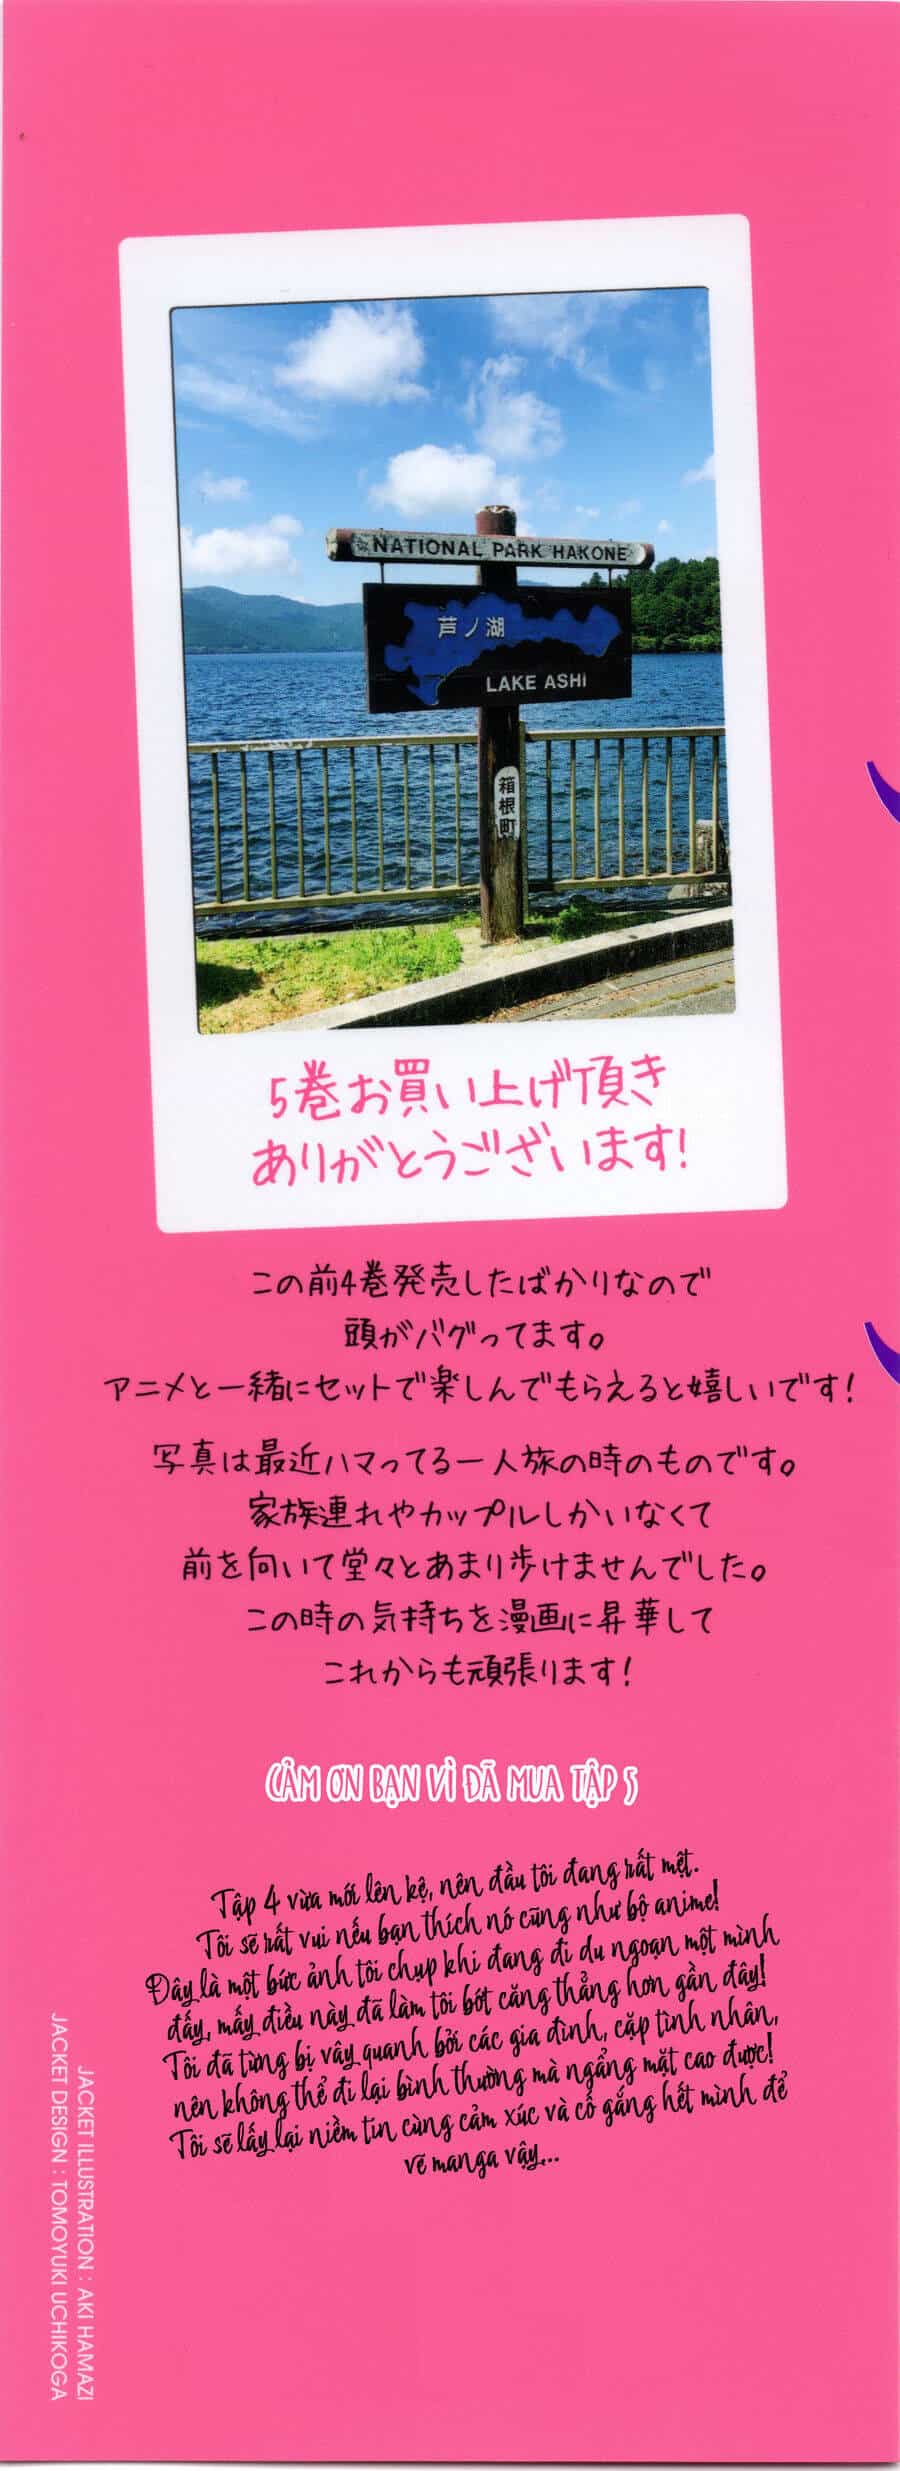 NATIONAL PARK HAKONE
芦ノ湖
LAKE ASHI
箱根町
5巻お買い上げ頂き
ありがとうございます!
この前4巻発売したばかりなので
頭がバグってます。
アニメと一緒にセットで楽しんでもらえると嬉しいです!
写真は最近ハマってる一人旅の時のものです。
家族連れやカップルしかいなくて
前を向いて堂々とあまり歩けませんでした。
この時の気持ちを漫画に昇華して
これからも頑張ります!
CẢM ƠN BẠN VÌ ĐÃ MUA TẬP 5
Tập 4 vừa mới lên kệ, nên đầu tôi đang rất mệt.
Tôi sẽ rất vui nếu bạn thích nó cũng như bộ anime!
Đây là một bức ảnh tôi chụp khi đang đi du ngoạn một mình
đấy, mấy điều này đã làm tôi bớt căng thẳng hơn gần đây!
Tôi đã từng bị vây quanh bởi các gia đình, cặp tình nhân,
nên không thể đi lại bình thường mà ngẩng mặt cao được!
Tôi sẽ lấy lại niềm tin cùng cảm xúc và cố gắng hết mình để
vẽ manga vậy...
JACKET ILLUSTRATION : AKI HAMAZI
JACKET DESIGN : TOMOYUKI UCHIKOGA